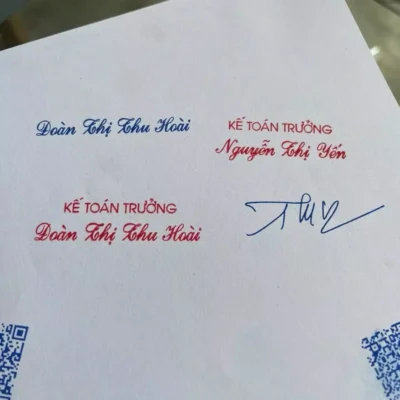 Đoàn Thị Thu Hoài
KẾ TOÁN TRƯỞNG
Nguyễn Thị Yến
KẾ TOÁN TRƯỞNG
Đoàn Thị Thu Hoài